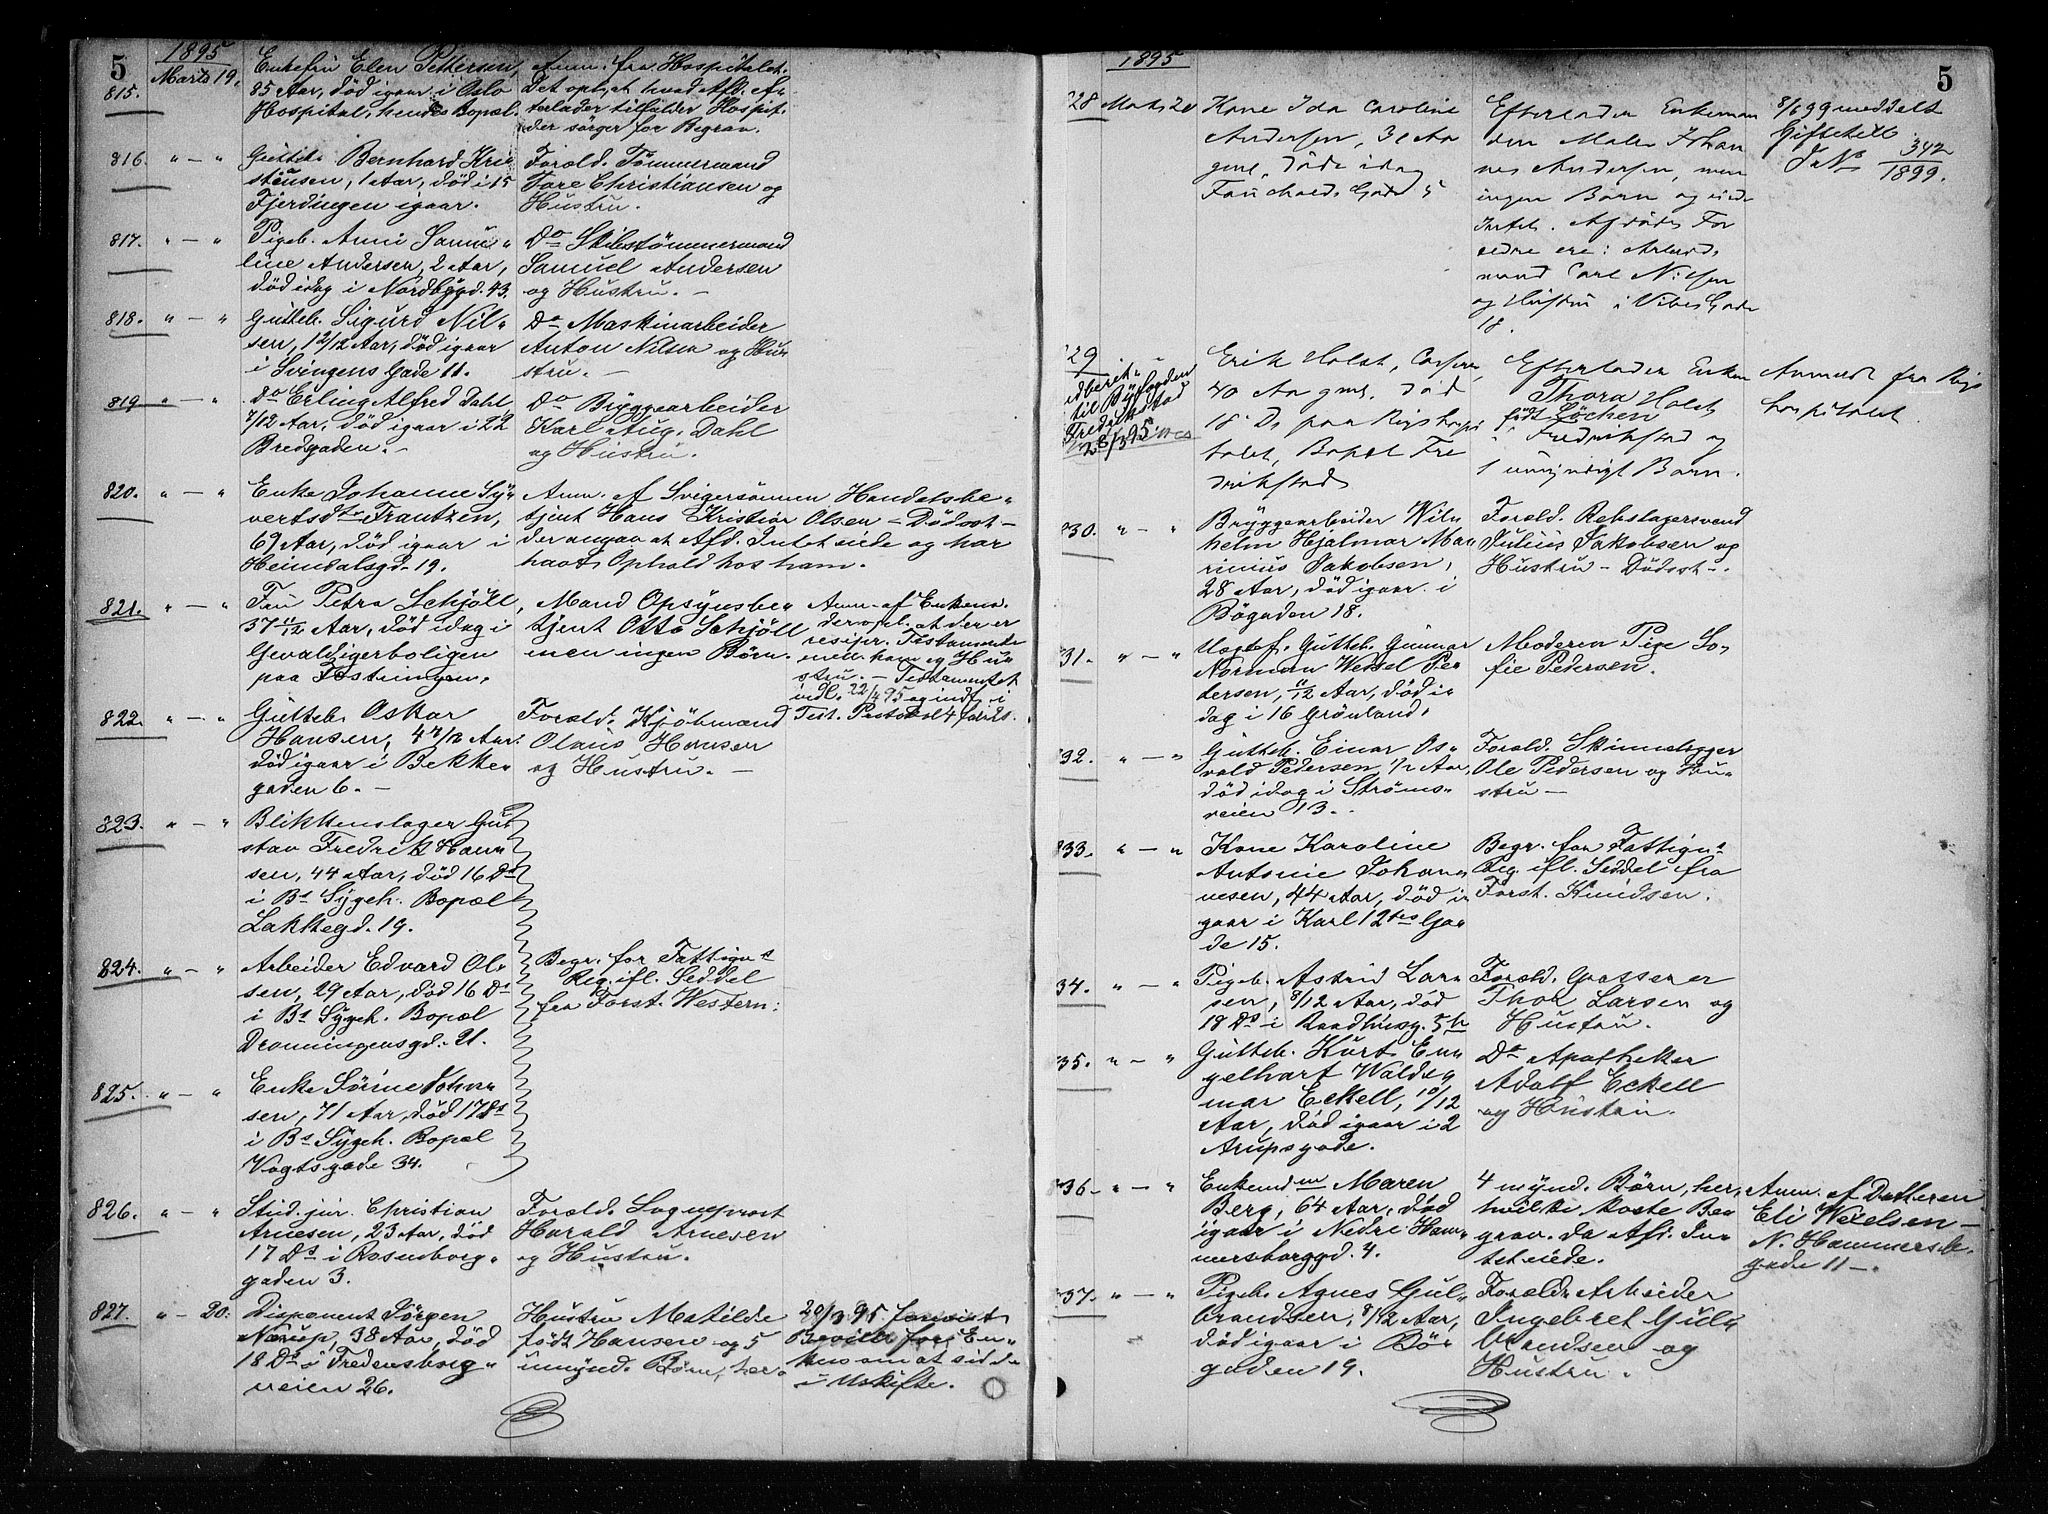 5
1895
815. Marts 19,
Enkefru Elen Pettersen,
85 Aar, død igaar i Oslo
Hospital, hendes Bopæl.
Anm. fra Hospitalet.
Det oplyst hvad Afd. ef-
terlader tilfalder Hospit-
der sørger for Begrav.
816. " - "
Gutteb. Bernhard Kri-
stensen, 1 Aar, død i 15
Fjerdingen igaar.
Foræld. Tømmermand
Tore Christiansen og
Hustru.
817. " - "
Pigeb. Anni Samu-
line Andersen, 2 Aar,
død idag i Nordbygd. 43.
Do Skibstømmermand
Samuel Andersen
og Hustru. -
818. " - "
Gutteb. Sigurd Nil-
sen, 1 2/12 Aar, død igaar
i Svingens Gade 11.
Do Maskinarbeider
Anton Nilsen og Hu-
stru. -
819 " - "
Do Erling Alfred Dahl
7/12 Aar, død igaar i 22
Bredgaden. -
Do Bryggearbeider
Karl Aug. Dahl
og Hustru.
820. " - "
Enke Johanne Sy-
vertsdtr Frantzen,
69 Aar, død igaar i
Heimdalsgd. 19.
Anm. af Svigersønnen Handelsbe-
tjent Hans Kristian Olsen - Dødsat -
der angav at Afd. Intet eiede og har
havt Ophold hos ham.
821. " - "
Fru Petra Schjöll,
37 11/12 Aar, død idag i
Gevaldigerboligen
paa Fæstningen.
Mand Opsynsbe-
tjent Otto Schjöll
men ingen Børn.
Anm. af Enkem.
der opl. at der er
resipr. Testamente
mell. ham og Hu-
stru. - Testamentet
indl. 22/4 95 og indf. i
Test. Protokol 4 fol.
822. " - "
Gutteb. Oskar
Hansen, 4 7/12 Aar.
død igaar i Bekke-
gaden 6. -
Foræld. Kjøbmand
Olaus Hansen
og Hustru. -
823. " - "
Blikkenslager Gu-
stav Fredrik Han-
sen, 44 Aar, død 16 Ds
i Bs Sygeh. Bopæl
Lakkegd. 19.
824. " - "
Arbeider Edvard Ol-
sen, 29 Aar, død 16 Ds
i Bs Sygeh. Bopæl
Dronningensgd. 21.
Begr. for Fattigv.s
Reg. ifl. Seddel
fra Forst. Western.
825. " - "
Enke Sørine Johan-
sen, 71 Aar, død 17 Ds
i Bs Sygeh. Bopæl
Vogtsgade 34.
826. " - "
Stud. jur. Christian
Arnesen, 23 Aar, død
17 Ds i Rosenborg-
gaden 3.
Foræld. Sogneprest
Harald Arnesen
og Hustru.
827. " - 20.
Disponent Jörgen
Nærup, 38 Aar, død
18 Ds i Fredensborg-
veien 26.
Hustru Matilde
født Hansen og 5
umynd. Børn, her.
20/3 95 forevist
Bevill. for En-
ken om at sidde
i Uskifte.
5
1895
28 Marts 20
Kone Ida Caroline
Andersen, 31 Aar
gml. døde idag
Fauchalds Gade 5
Efterlader Enkeman-
den Maler Johan-
nes Andersen, men
ingen Barn og eiede
Intet. Afdødes For-
ældre ere: Arbeids-
mand Carl Nilsen
og Hustru i Vibes Gade
18.
8/6 99 meddelt
Giftetill.
J No 342/1899.
29
Indberet.
til Byfogden
Fredrikstad
28/3 95
Erik Holst,
40 Aar gml. død
18 Ds paa Rigshospi-
talet, Bopæl Fre-
drikstad
Efterlader Enken
Thora Holst
født Löchen
i Fredrikstad og
1 umyndigt Barn.
Anmeldt fra Rigs-
hospitalet.
830. " - "
Bryggearbeider Wil-
helm Hjalmar Ma-
rinius Jakobsen,
28 Aar, død igaar i
Bögaden 18.
Foræld. Rebslagersvend
Julius Jakobsen og
Hustru - Dødsat -.
831. " - "
Uægtef. Gutteb. Gunnar
Norman Wessel Pe-
dersen, 11/12 Aar, død i-
dag i 16 Grønland.
Moderen Pige So-
fie Pedersen.
832. " - "
Gutteb. Einar Os-
vald Pedersen, 1/2 Aar,
død idag i Strøms-
veien 13.
Foræld. Skinnelegger
Ole Pedersen og Hu-
stru -
833. " - "
Kone Karoline
Antonie Johan-
nesen, 44 Aar, død i-
gaar i Karl 12tes Ga-
de 15.
Begr. for Fattigv.s
Reg. ifl. Seddel fra
Forst. Knudsen.
34. " - "
Pigeb. Astrid Lar-
sen, 8/12 Aar, død
18 Ds i Raadhusg. 5 b
Foræld. Grosserer
Thor Larsen og
Hustru.
35. " - "
Gutteb. Kurt En-
gelhart Walde-
mar Eckell, 10/12
Aar, død igaar i 2
Arupsgade.
Do Apotheker
Adolf Eckell
og Hustru.
836 - " - "
Enkemdm Maren
Berg, 64 Aar, død
igaar i Nedre Ham-
mersborggd. 4.
4 mynd. Børn, her,
hvilke koste Be-
grav. da Afd. In-
tet eiede.
Anm. af Datteren
Eli Weelsen -
N. Hammersb.
gade 11 -.
837. " - "
Pigeb. Agnes Gul-
brandsen, 8/12 Aar,
død igaar i Bör-
gaden 19.
Foræld. Arbeider
Ingebret Gul-
brandsen og
Hustru.